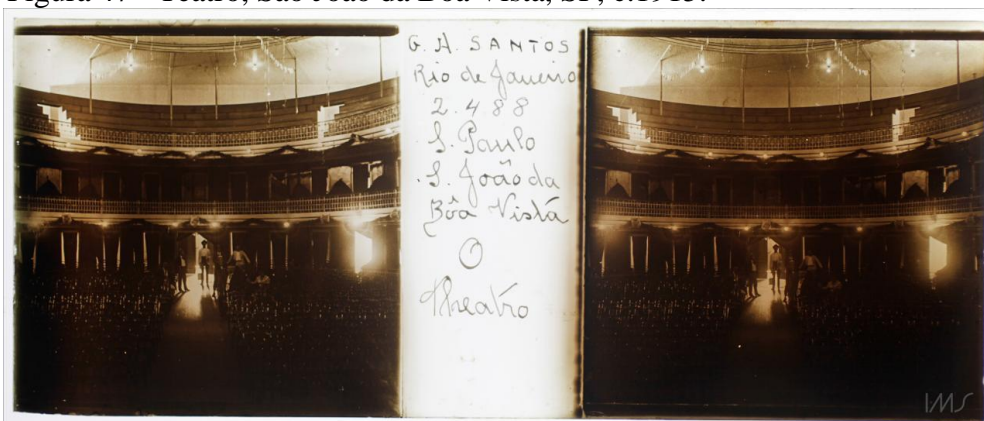 G. A. SANTOS
Rio de Janeiro
2.488
S. Paulo
S. João da
Bôa Vista
O
Theatro
IMS